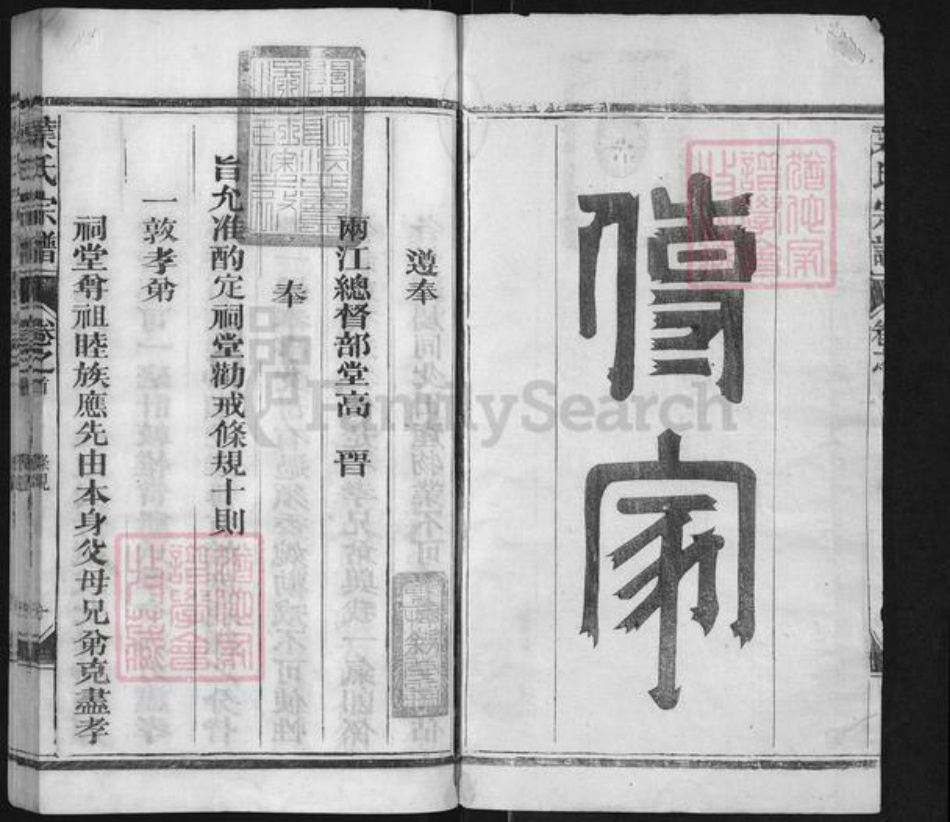 傳家
遵奉
兩江總督部堂高 晉
奉
旨允准酌定祠堂勸戒條規十則
一敦孝弟
祠堂尊祖睦族應先由本身父母兄弟克盡孝
葉氏宗譜 卷之首 條規
FamilySearch